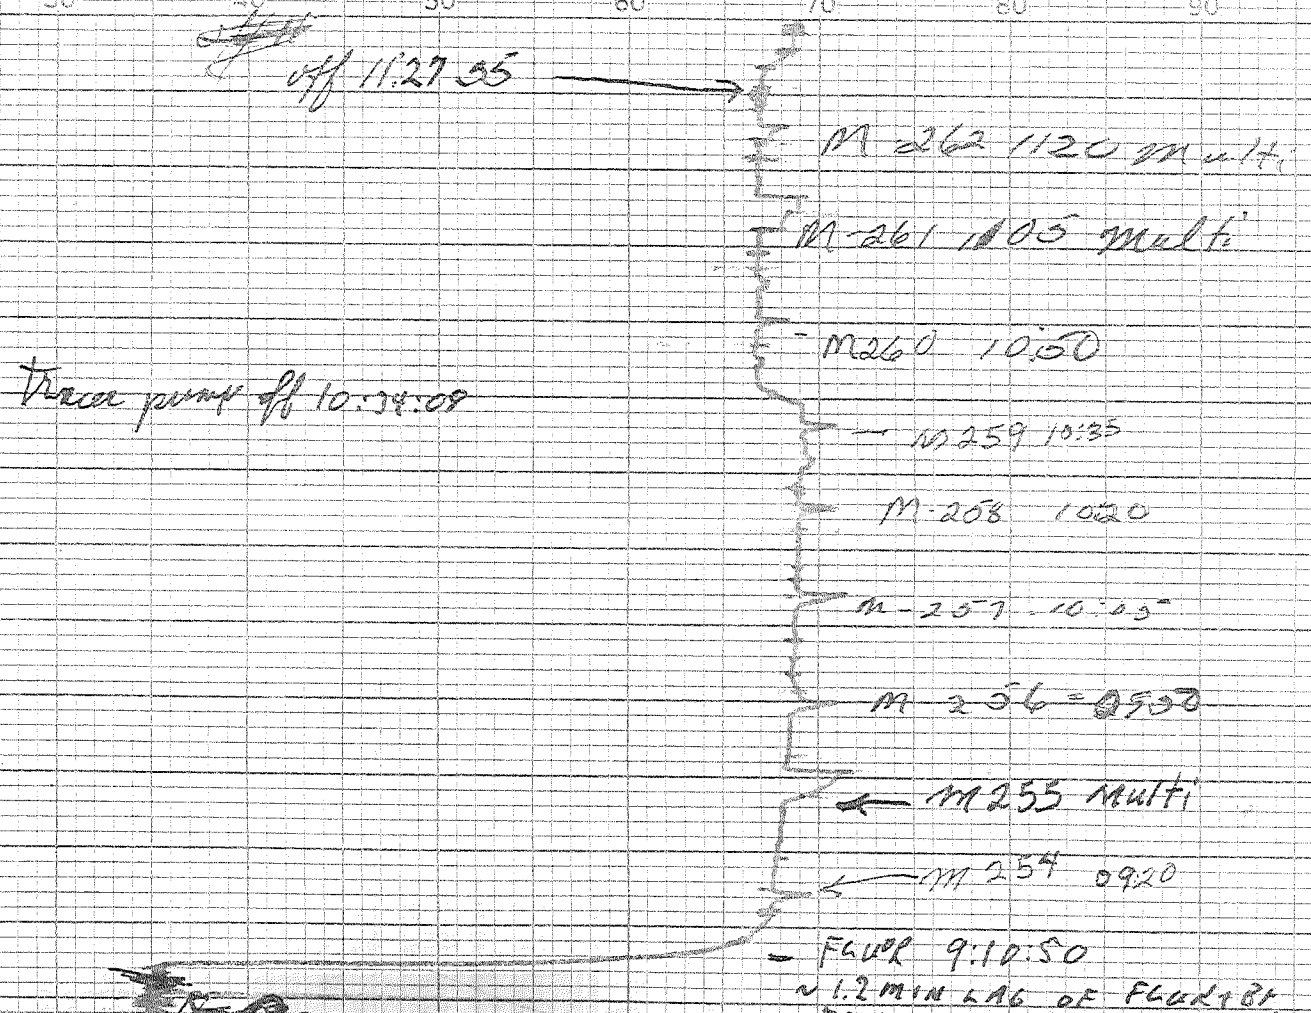 30 40 50 60 70 80 90
off 11:27 35
M-262 1120 Multi
M-261 1105 Multi
M260 10:50
Tracer pump off 10:34:08
M259 10:35
M-258 1020
M-257 10:05
M 256 = 0950
M255 Multi
M254 0920
- FLUOR 9:10:50
~ 1.2 MIN LAG OF FLUOR + Br